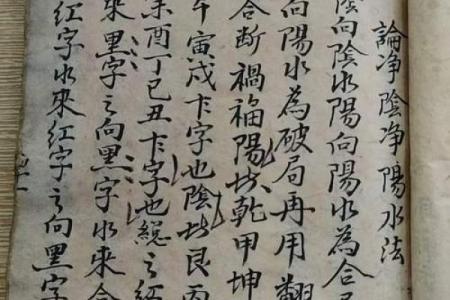 論净陰净陽水法
陰向陰水陽向陽水為合
向陽水為破局再用翻
合斷禍福陽坆乾甲坤
午寅戌卞字也陰坆艮丙
未酉丁巳丑卞字也緫之紅
來黑字之向黑字水來合
红字水來紅字之向黑字